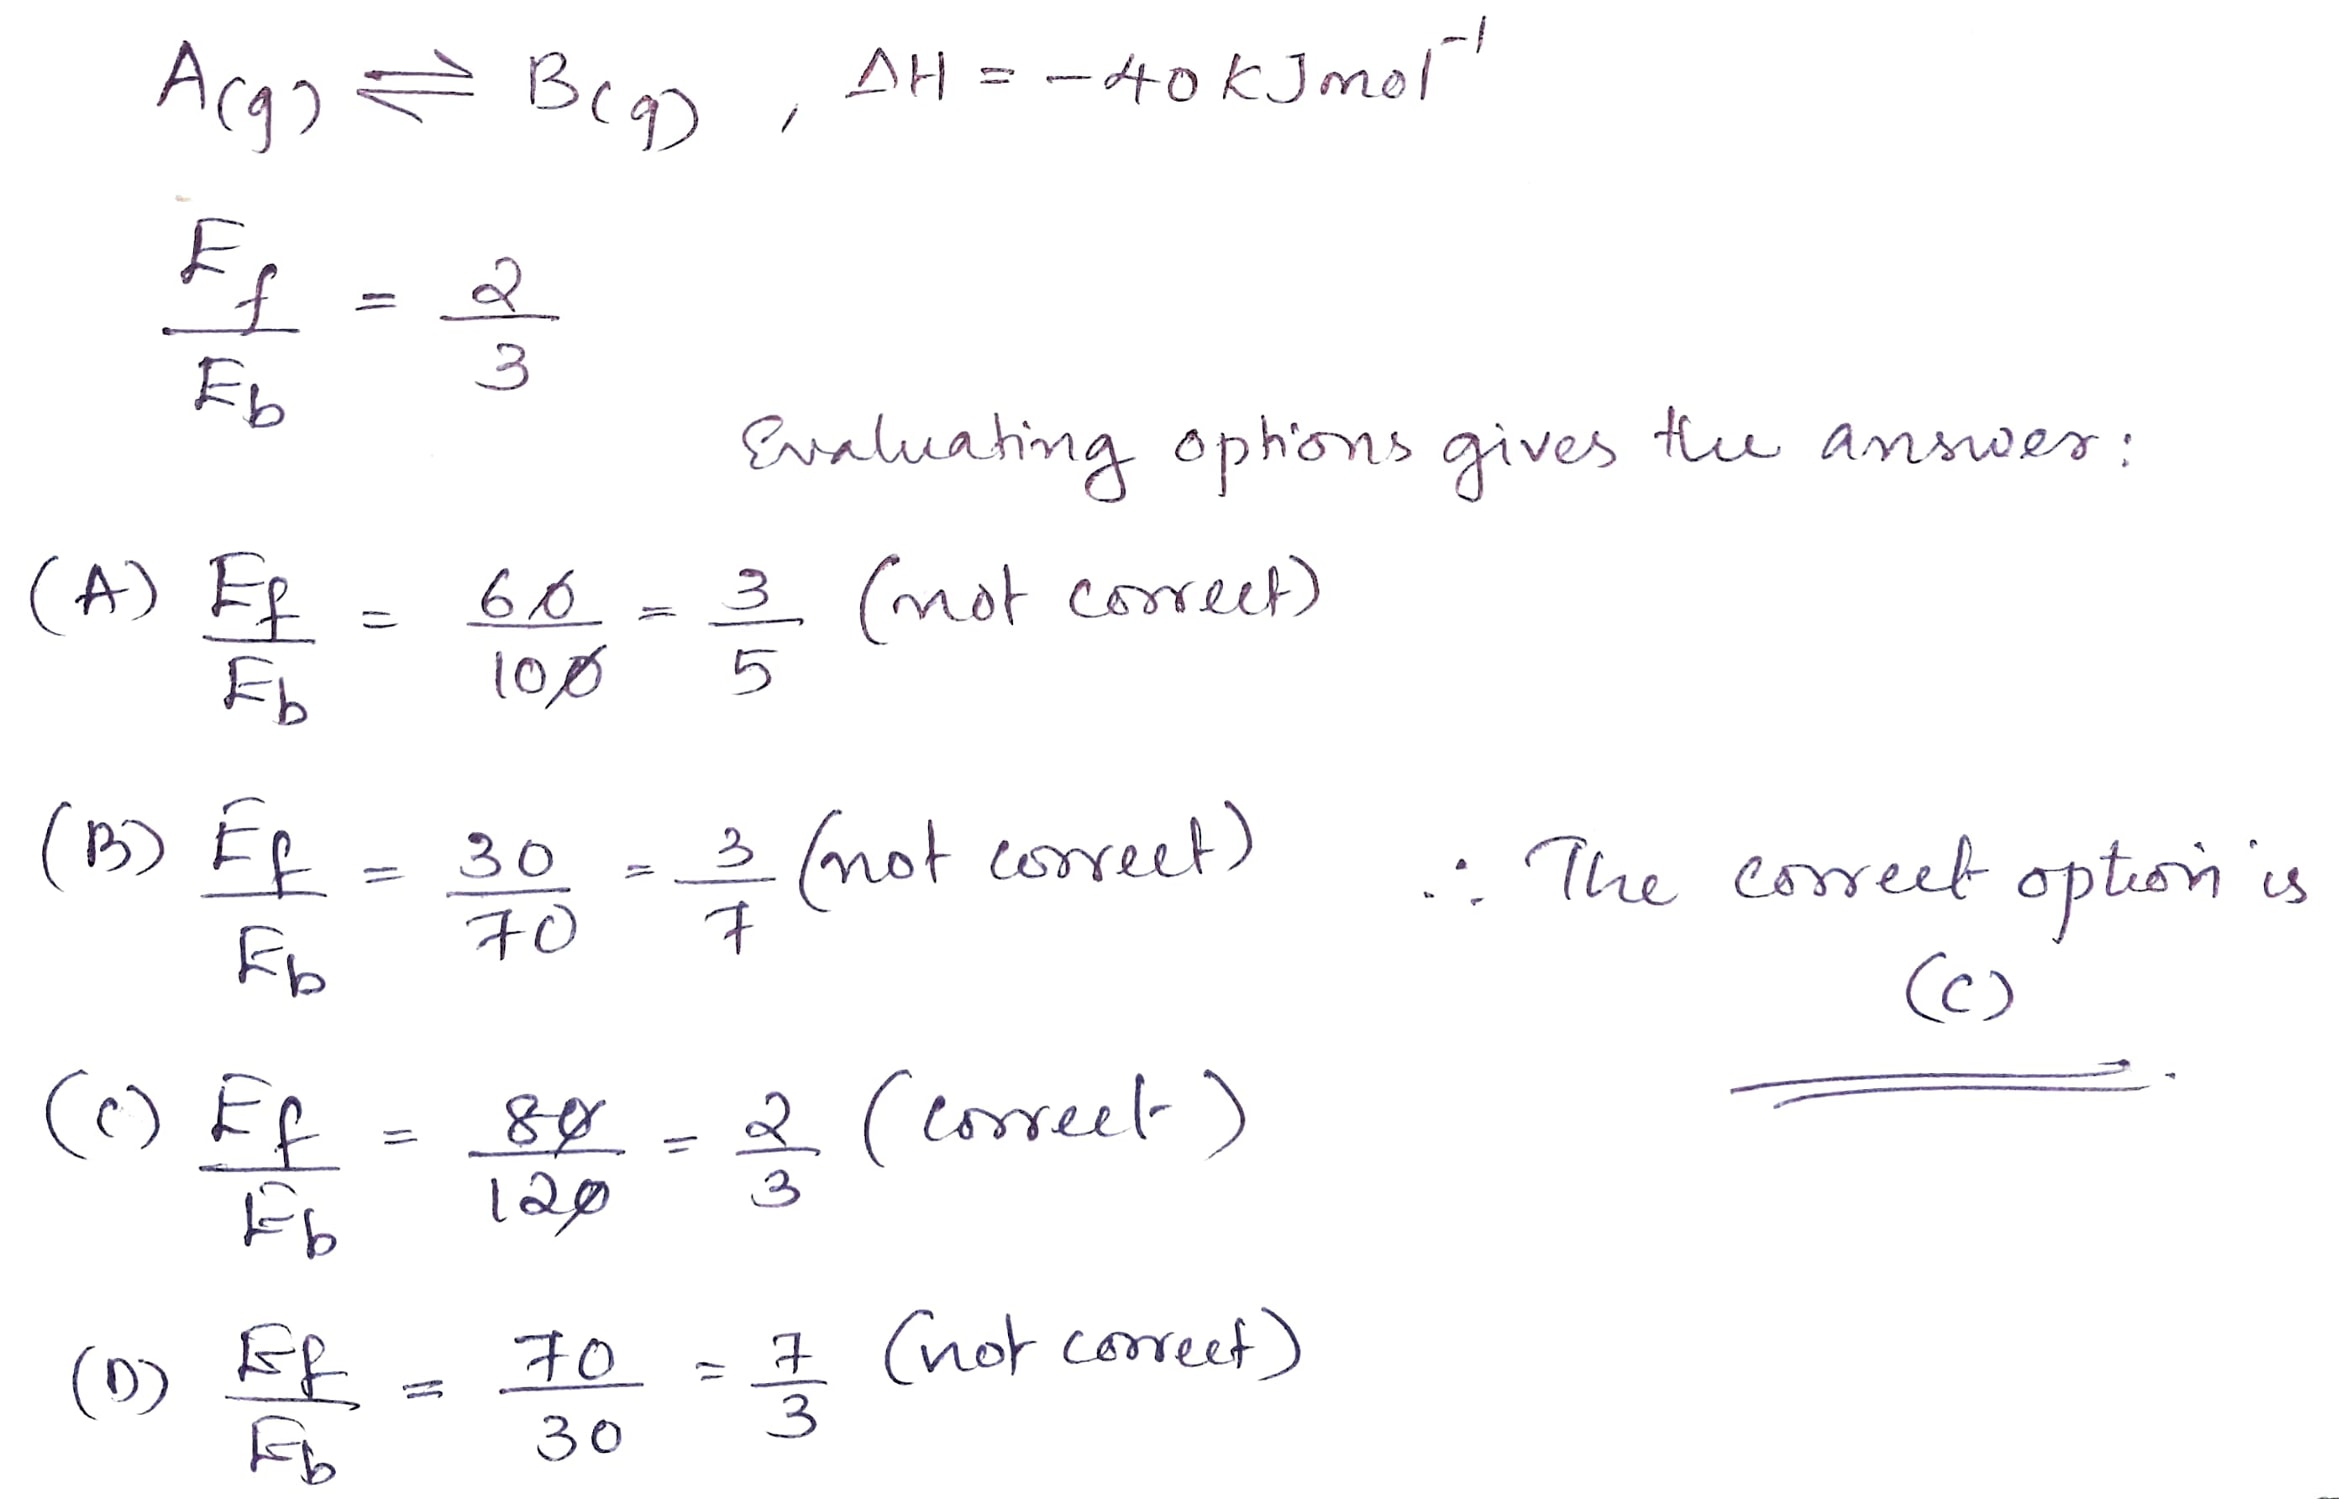 A(g) ⇌ B(g) , ΔH = -40 kJ mol⁻¹
E_f / E_b = 2 / 3
Evaluating options gives the answer:
(A) E_f / E_b = 60 / 100 = 3 / 5 (not correct)
(B) E_f / E_b = 30 / 70 = 3 / 7 (not correct)
∴ The correct option is
(C)
(C) E_f / E_b = 80 / 120 = 2 / 3 (correct)
(D) E_f / E_b = 70 / 30 = 7 / 3 (not correct)